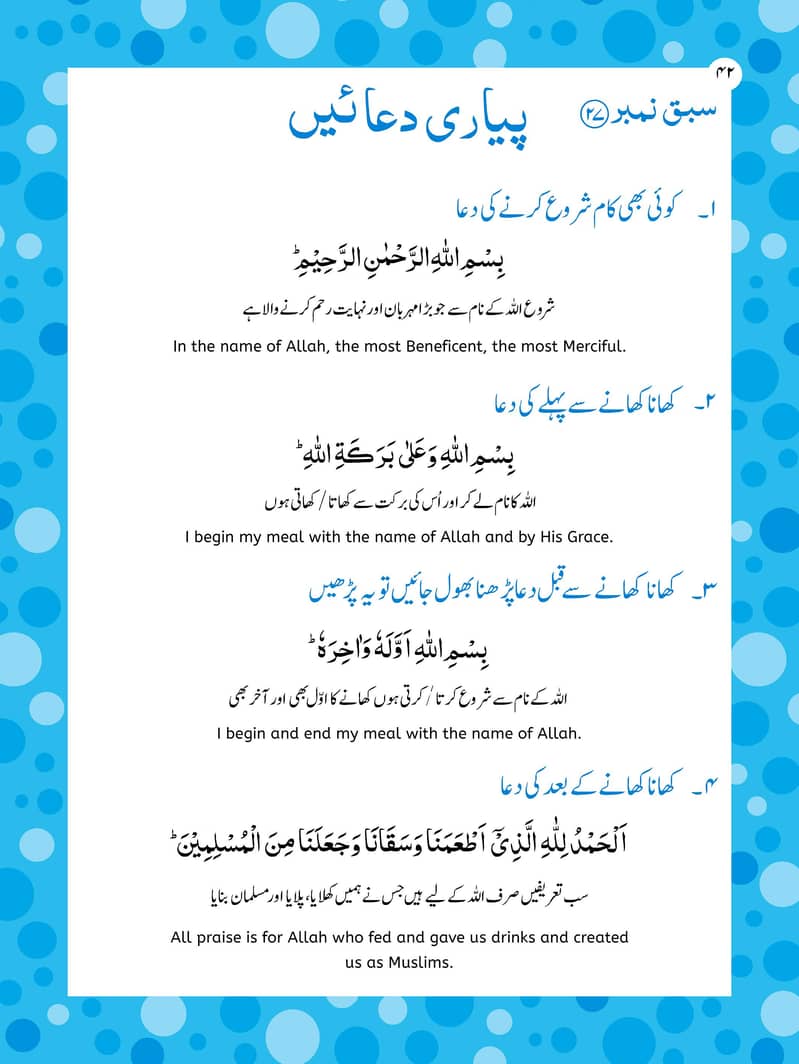 ۴۲
سبق نمبر ۲۷
پیاری دعائیں
۱۔ کوئی بھی کام شروع کرنے کی دعا
بِسْمِ اللّٰهِ الرَّحْمٰنِ الرَّحِيْمِ ؕ
شروع اللہ کے نام سے جو بڑا مہربان اور نہایت رحم کرنے والا ہے
In the name of Allah, the most Beneficent, the most Merciful.
۲۔ کھانا کھانے سے پہلے کی دعا
بِسْمِ اللّٰهِ وَعَلٰى بَرَكَةِ اللّٰهِ ؕ
اللہ کا نام لے کر اور اُس کی برکت سے کھاتا / کھاتی ہوں
I begin my meal with the name of Allah and by His Grace.
۳۔ کھانا کھانے سے قبل دعا پڑھنا بھول جائیں تو یہ پڑھیں
بِسْمِ اللّٰهِ اَوَّلَهٗ وَاٰخِرَهٗ ؕ
اللہ کے نام سے شروع کرتا / کرتی ہوں کھانے کا اوّل بھی اور آخر بھی
I begin and end my meal with the name of Allah.
۴۔ کھانا کھانے کے بعد کی دعا
اَلْحَمْدُ لِلّٰهِ الَّذِىْٓ اَطْعَمَنَا وَسَقَانَا وَجَعَلَنَا مِنَ الْمُسْلِمِيْنَ ؕ
سب تعریفیں صرف اللہ کے لیے ہیں جس نے ہمیں کھلایا، پلایا اور مسلمان بنایا
All praise is for Allah who fed and gave us drinks and created
us as Muslims.